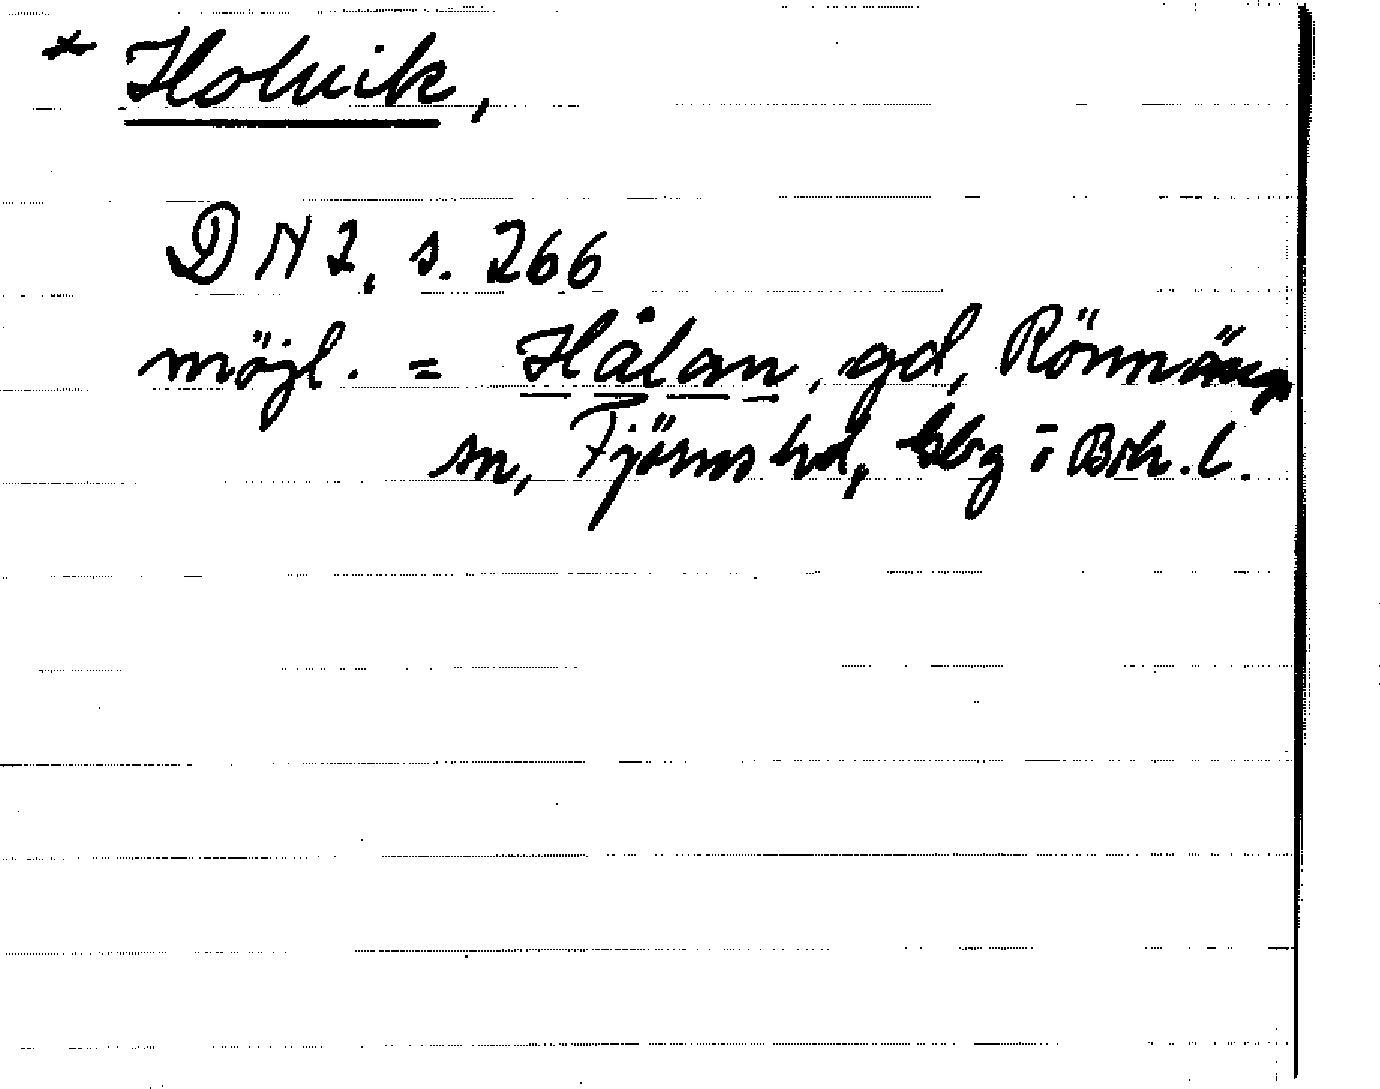 * Holvik,
DN 2, s. 266
möjl. = Hålan, gd, Rönnäng
sn, Tjörns hd, Gbg o Boh. l.